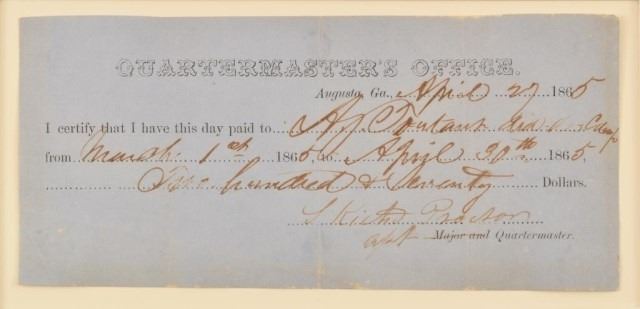 QUARTERMASTER'S OFFICE.
Augusta, Ga., April 27 1865
I certify that I have this day paid to A J Toutant
from March 1st 1865, to April 30th 1865.
Two hundred & Seventy Dollars.
Proctor
Capt Major and Quartermaster.